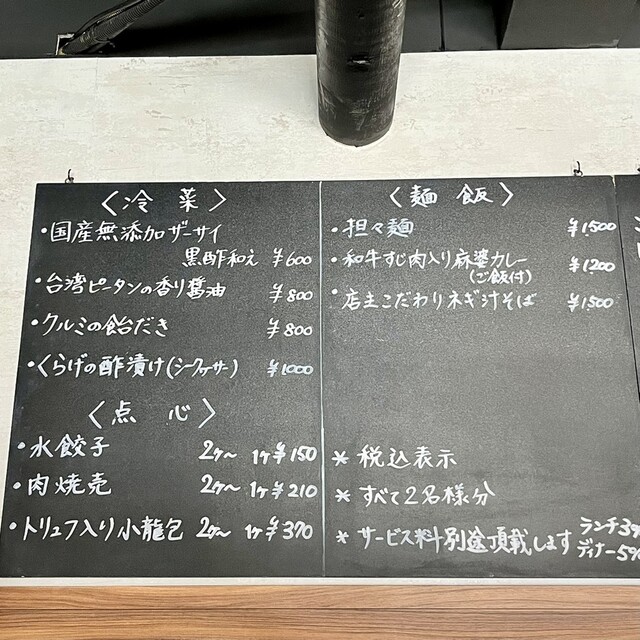 〈冷菜〉
・国産無添加ザーサイ
黒酢和え ¥600
・台湾ピータンの香り醤油 ¥800
・クルミの飴だき ¥800
・くらげの酢漬け(シークヮサー) ¥1000
〈点心〉
・水餃子 2ヶ〜 1ヶ¥150
・肉焼売 2ヶ〜 1ヶ¥210
・トリュフ入り小龍包 2ヶ〜 1ヶ¥370
〈麺飯〉
・担々麺 ¥1500
・和牛すじ肉入り麻婆カレー ¥1200
(ご飯付)
・店主こだわりネギ汁そば ¥1500
* 税込表示
* すべて2名様分
* サービス料別途頂戴します ランチ3%
ディナー5%